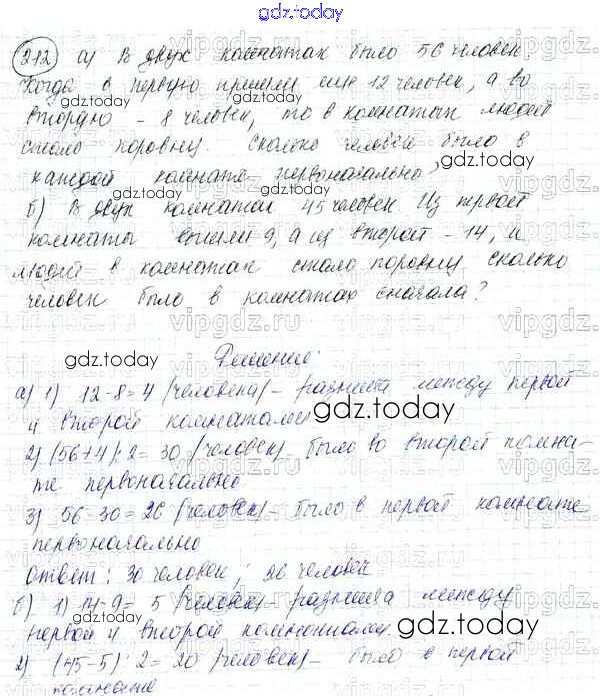 gdz.today
212 а) В двух комнатах было 56 человек
Когда в первую пришли еще 12 человек, а во
gdz.today
вторую - 8 человек, то в комнатах людей
стало поровну. Сколько человек было в
gdz.today
каждой комнате первоначально?
gdz.today
б) В двух комнатах 45 человек. Из первой
комнаты вышли 9, а из второй - 14, и
людей в комнатах стало поровну. Сколько
человек было в комнатах сначала?
vipgdz.ru
gdz.today
Решение:
а) 1) 12-8=4 (человека) - разница между первой
gdz.today
и второй комнатами
2) (56+4):2=30 (человек) - было во второй комна-
gdz.today
те первоначально
3) 56-30=26 (человек) - было в первой комнате
gdz.today
первоначально
Ответ: 30 человек; 26 человек
б) 1) 14-9=5 (человек) - разница между
gdz.today
первой и второй комнатами.
2) (45-5):2=20 (человек) - было в первой
gdz.today
комнате